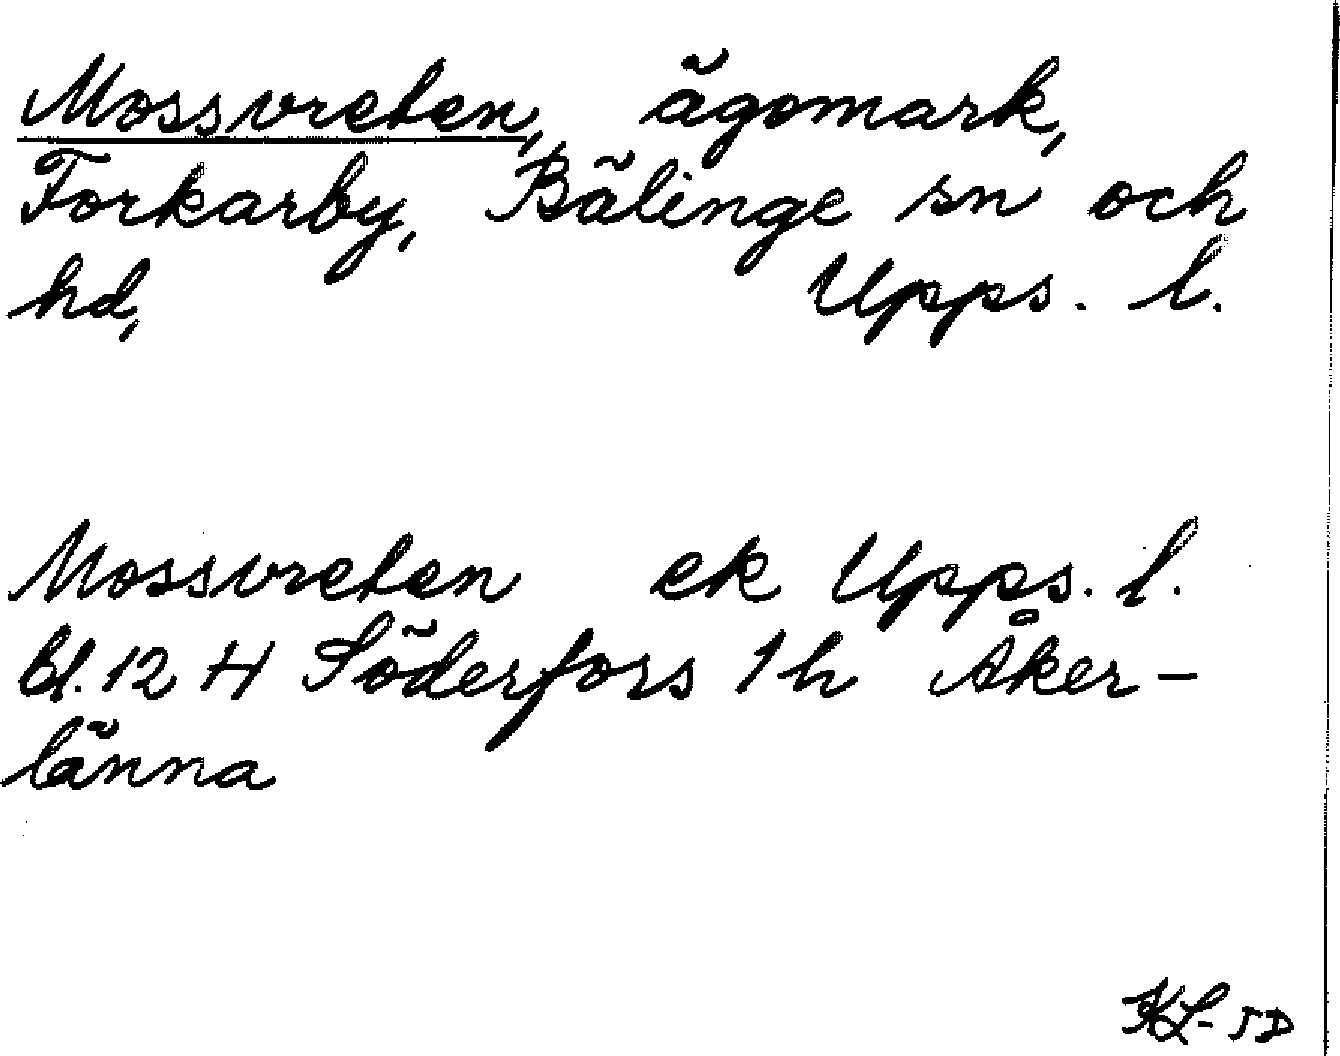 Mossvreten, ägomark,
Forkarby, Bälinge sn och
hd, Upps. l.
Mossvreten ek Upps. l.
bl. 12 H Söderfors 1h Åker-
länna
KL-SD